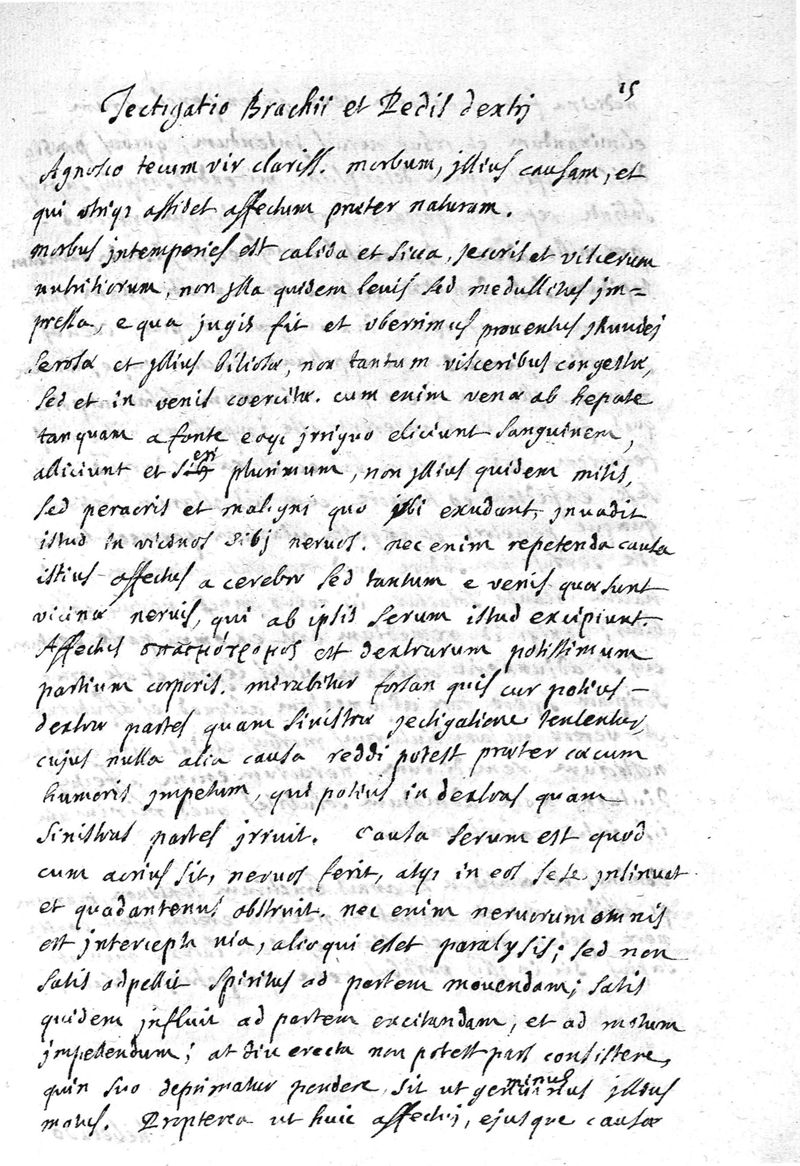 15
Jectigatio Brachii et Pedis dextrj
Agnosco tecum vir clariss. morbum, jllius causam, et
qui utriqz assidet affectum præter naturam.
morbus jntemperies est calida et sicca, jecoris et viscerum
nutritiorum, non jlla quidem levis sed medullitus jm=
pressa, e qua jugis fit et uberrimus proventus
serosæ et jllius biliosæ, non tantum visceribus congestæ,
sed et in venis coercitæ. cum enim venæ ab hepate
tanquam a fonte eoqz jrriguo eliciunt sanguinem,
alliciunt et plurimum, non jllius quidem mitis,
sed peracris et maligni quo jbi exudant, jnvadit
istud in vicinos sibj nervos. nec enim repetenda causa
istius affectus a cerebro sed tantum e venis quæ sunt
vicinæ nervis, qui ab ipsis serum istud excipiunt.
Affectus σπασμότρομος est dextrarum potissimum
partium corporis. mirabitur forsan quis cur potius –
dextræ partes quam sinistræ jectigatione tententur,
cujus nulla alia causa reddi potest præter cæcum
humoris jmpetum, qui potius in dextras quam
sinistras partes jrruit. Causa serum est quod
cum acrius sit, nervos ferit, atqz in eos sese jnsinuat
et quadantenus obstruit. nec enim nervorum omnis
est jntercepta via, alioqui esset paralysis; sed non
satis adpellit spiritus ad partem movendam; satis
quidem jnfluit ad partem excitandam, et ad motum
jmpellendum; at diu erecta non potest pars consistere,
quin suo deprimatur pondere, sit ut geminus jllius
motus. Propterea ut huic affectuj, ejusque causæ